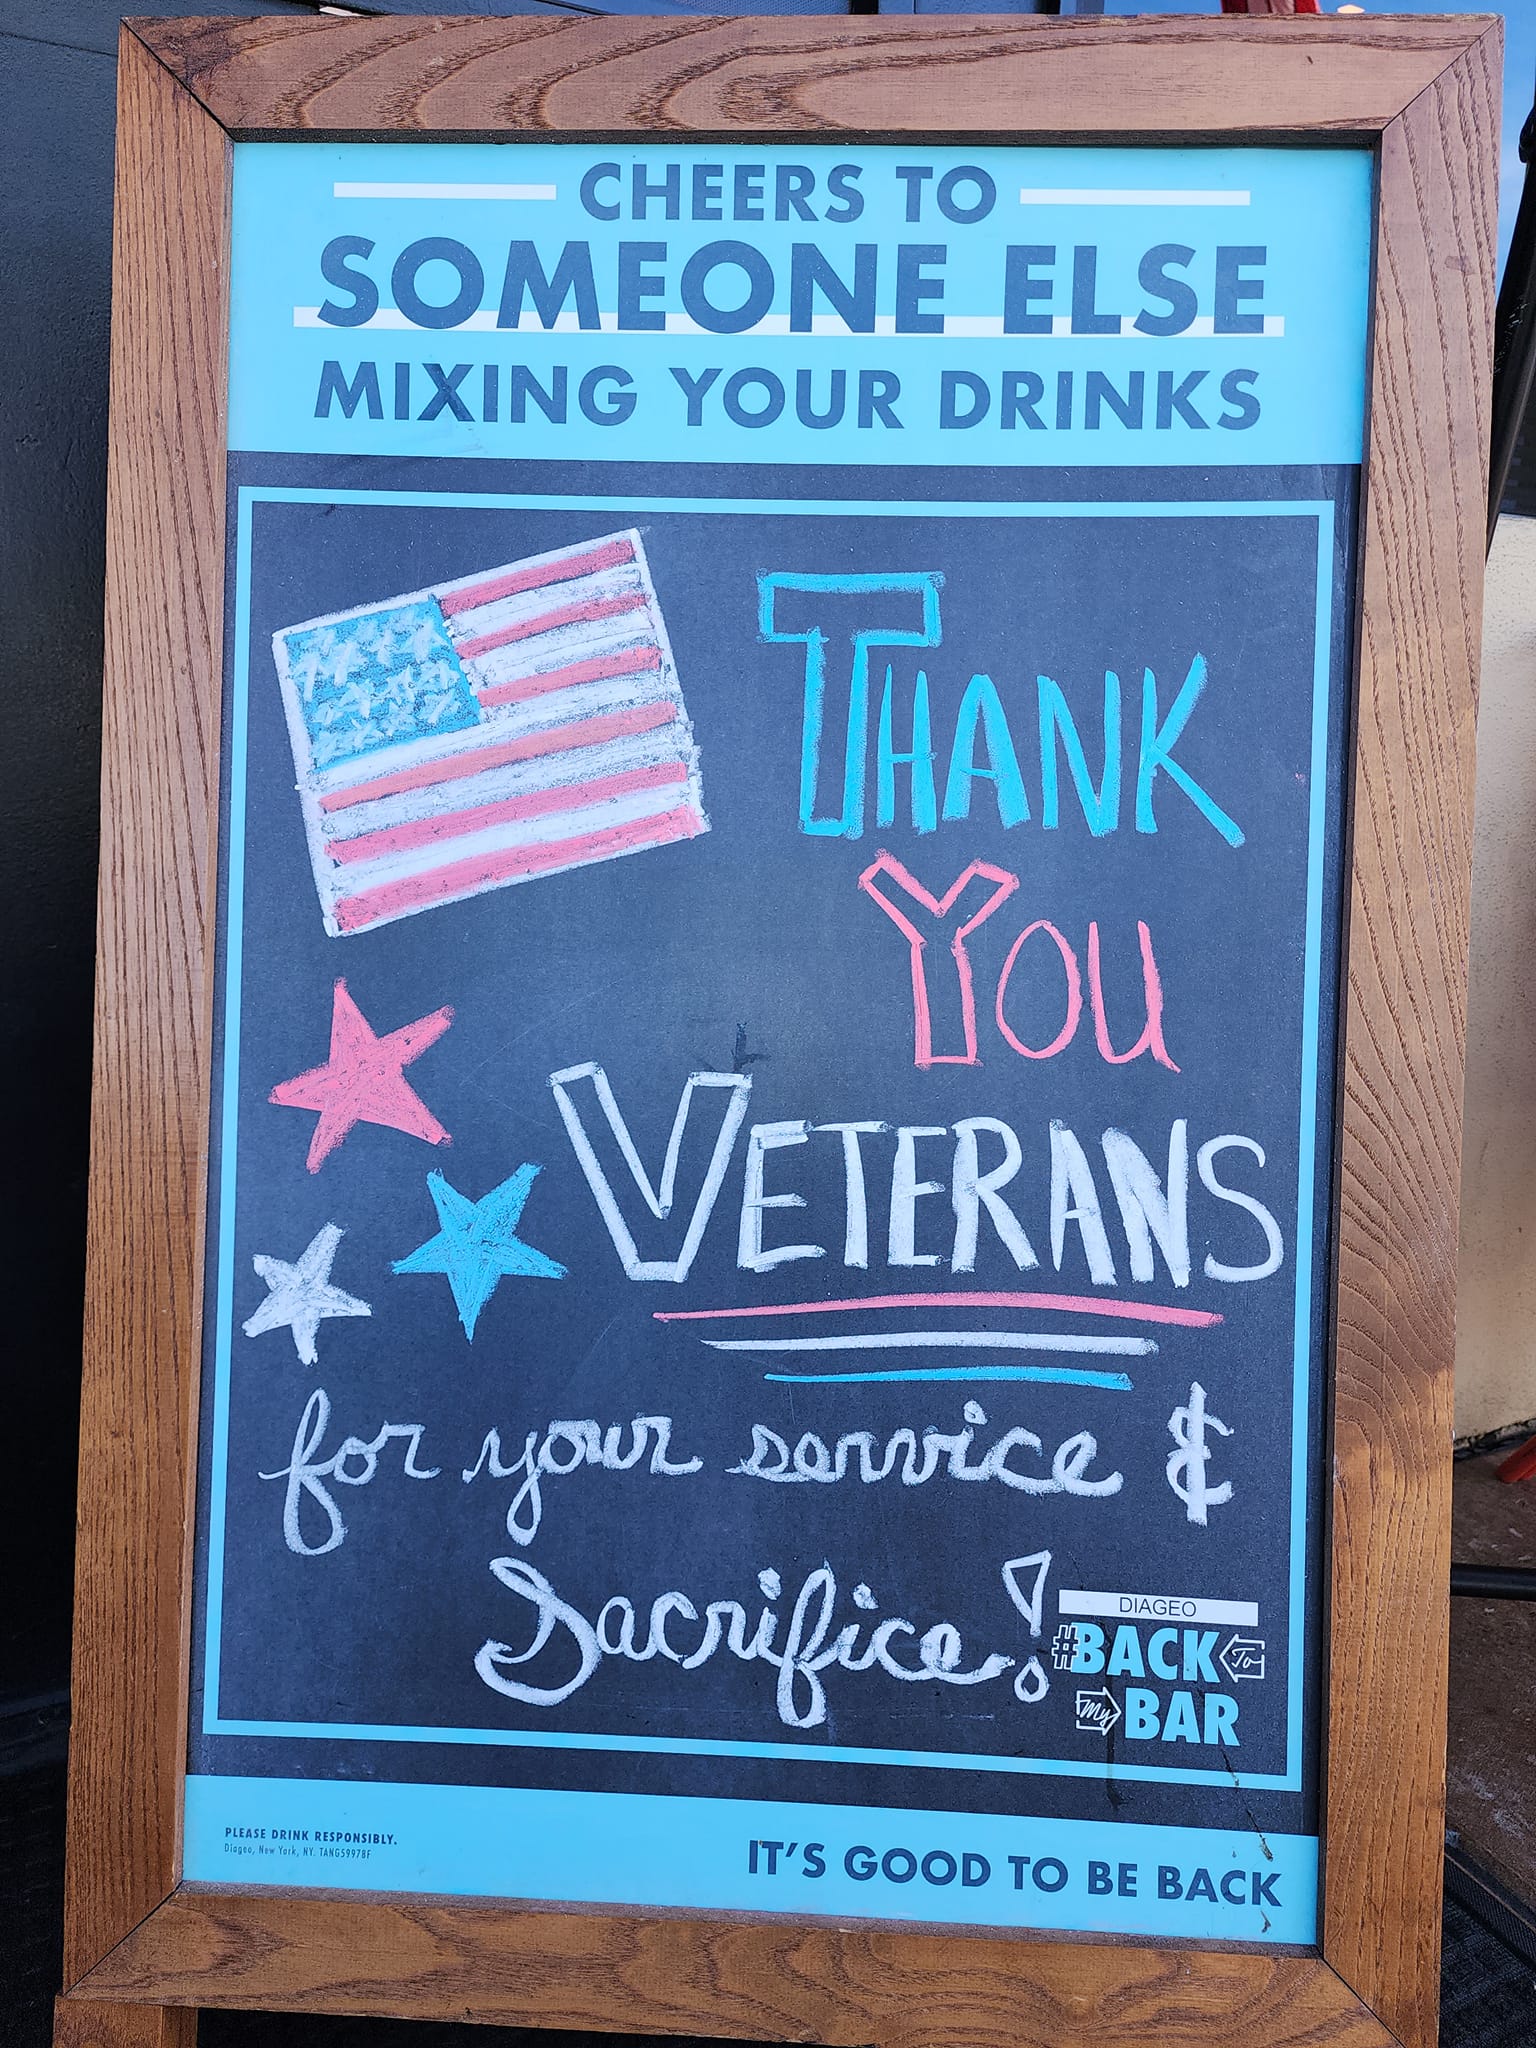 CHEERS TO
SOMEONE ELSE
MIXING YOUR DRINKS
THANK
YOU
VETERANS
for your service &
Sacrifice!
DIAGEO
#BACK To
My BAR
PLEASE DRINK RESPONSIBLY.
Diageo, New York, NY. TANG59978F
IT'S GOOD TO BE BACK